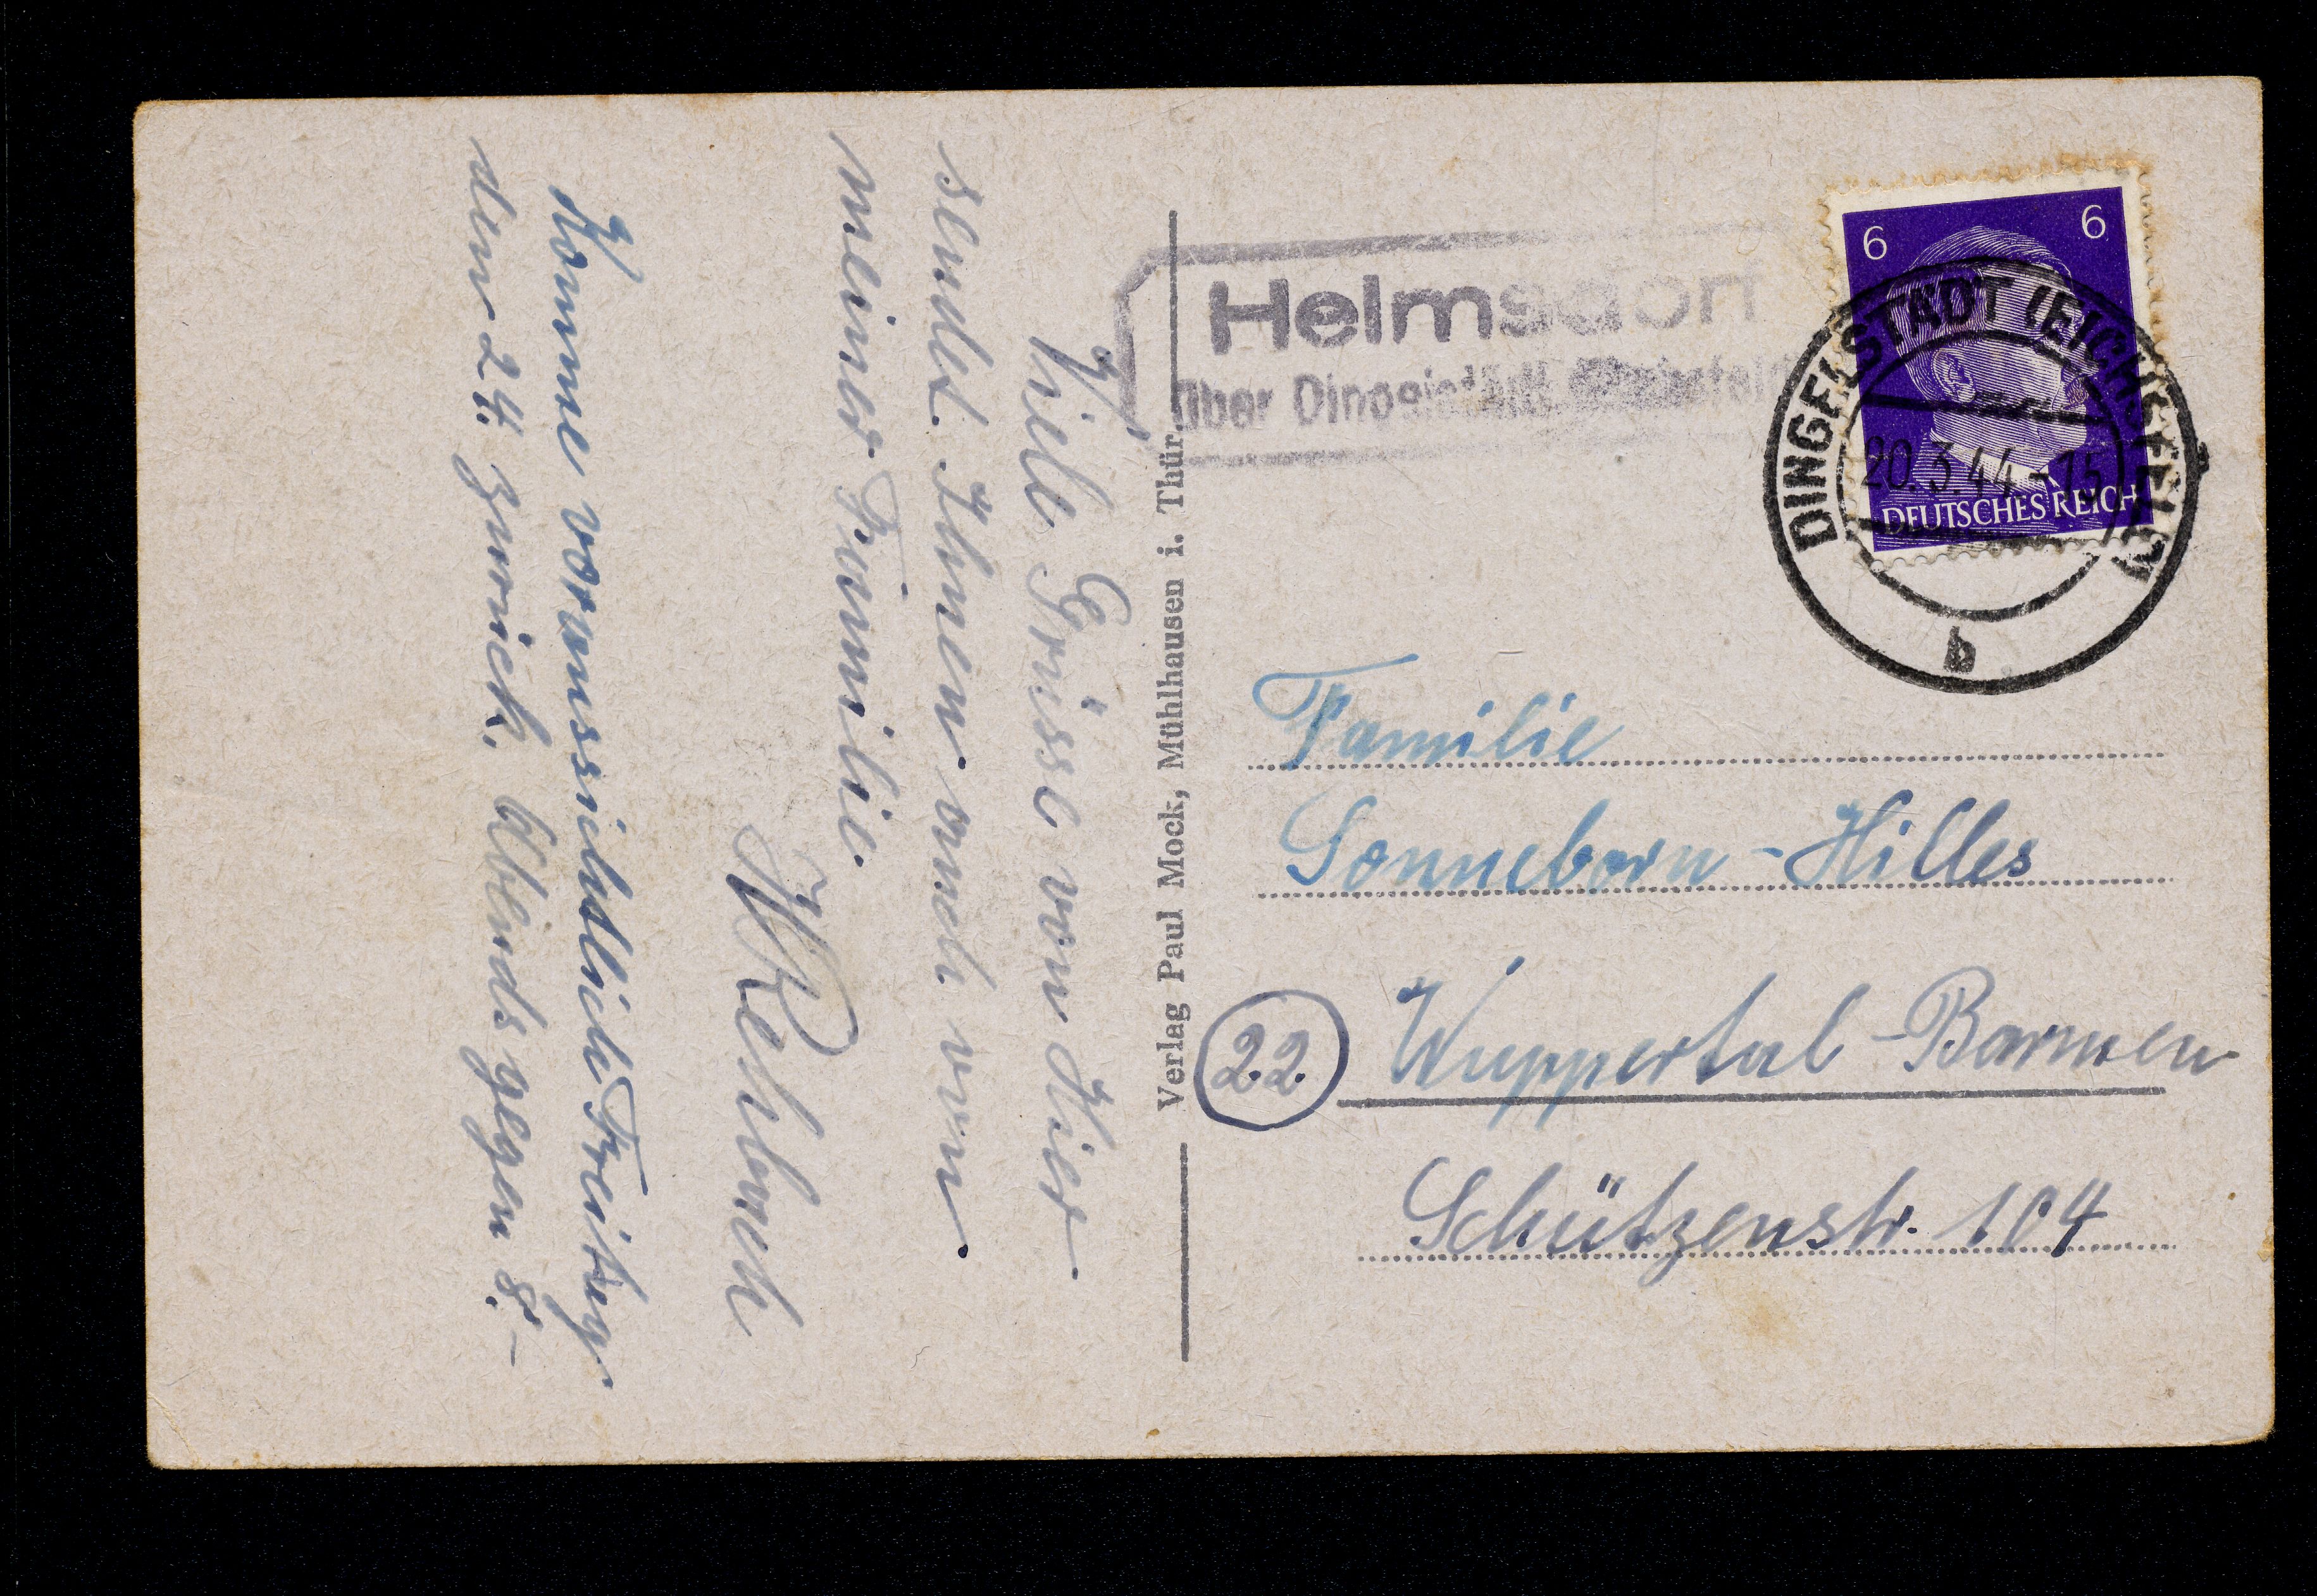 Viele Grüsse von Hier
sendet Ihnen auch von
meiner Familie.
Komme voraussichtlich Freitag
den 24. zurück. Abends gegen 8.–
Verlag Paul Mock, Mühlhausen i. Thür.
Helmsdorf
über Dingelstädt Eichsfeld
6 6
DEUTSCHES REICH
DINGELSTÄDT (EICHSFELD)
20.3.44-15
b
Familie
Sonneborn-Hilles
22 Wuppertal-Barmen
Schützenstr. 104